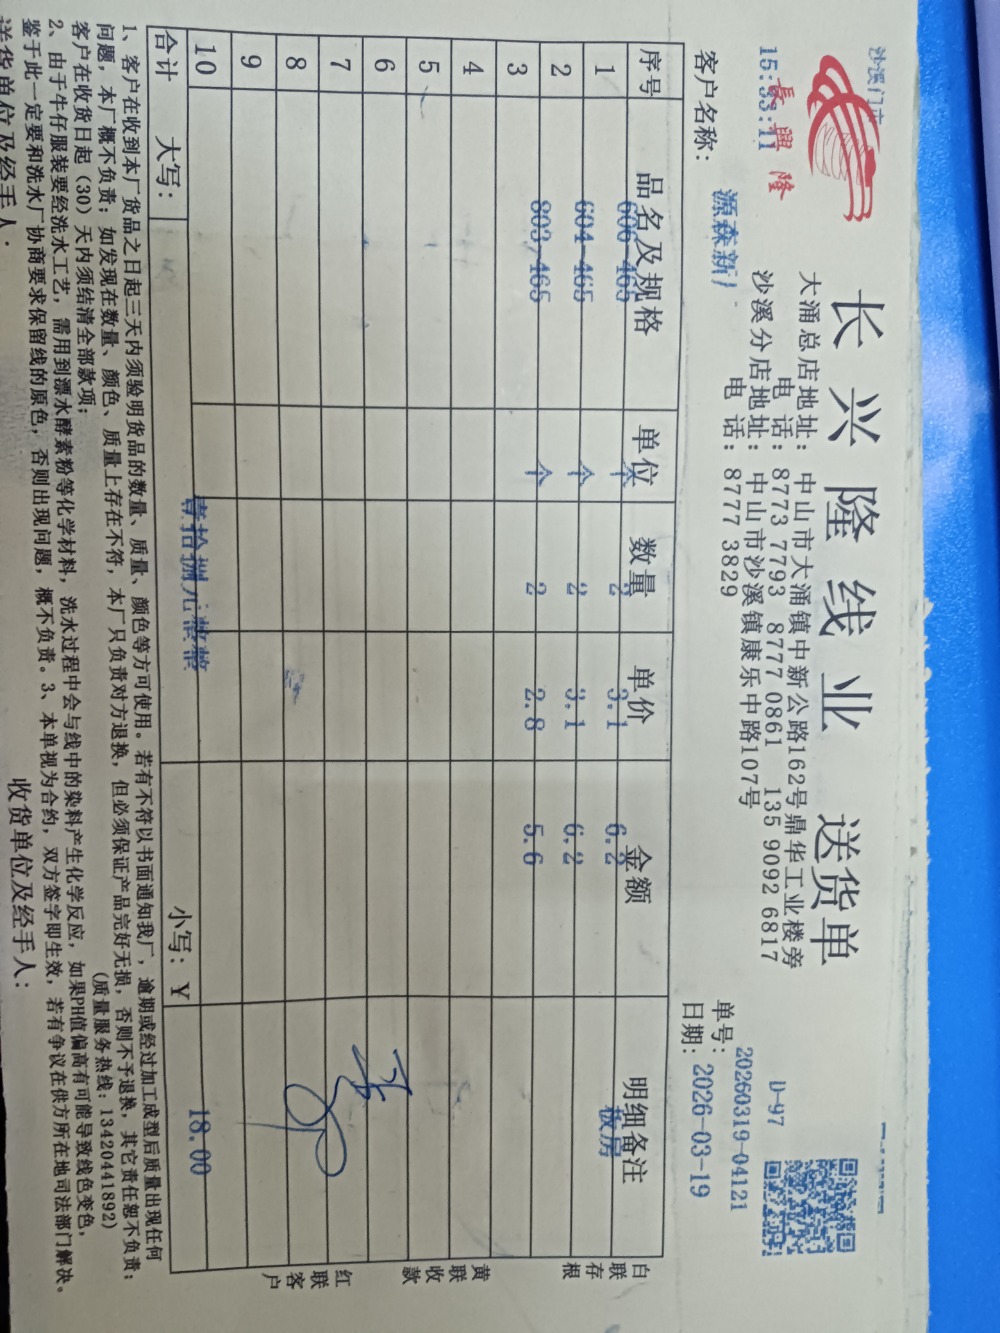 沙溪门市
15:33:11
長興隆
长兴隆线业 送货单
大涌总店地址: 中山市大涌镇中新公路162号鼎华工业楼旁
电 话: 8773 7793 8777 0861 135 9092 6817
沙溪分店地址: 中山市沙溪镇康乐中路107号
电 话: 8777 3829
D-97
单号: 20260319-04121
日期: 2026-03-19
客户名称: 源森新
序号 品名及规格 单位 数量 单价 金额 明细备注
1 606-465 个 2 3.1 6.2 板房
2 604-465 个 2 3.1 6.2
3 803-465 个 2 2.8 5.6
4
5
6
7
8
9
10
合计 大写: 壹拾捌元整整 小写: ¥ 18.00
白联存根
黄联收款
红联客户
1、客户在收到本厂货品之日起三天内须验明货品的数量、质量、颜色等方可使用。若有不符以书面通知我厂,逾期或经过加工成型后质量出现任何
问题,本厂概不负责;如发现在数量、颜色、质量上存在不符,本厂只负责对方退换,但必须保证产品完好无损,否则不予退换,其它责任恕不负责;
客户在收货日起(30)天内须结清全部款项; (质量服务热线:13420441892)
2、由于牛仔服装要经洗水工艺,需用到漂水酵素粉等化学材料,洗水过程中会与线中的染料产生化学反应,如果PH值偏高有可能导致线色变色,
鉴于此一定要和洗水厂协商要求保留线的原色,否则出现问题,概不负责。3、本单视为合约,双方签字即生效,若有争议在供方所在地司法部门解决。
送货单位及经手人: 收货单位及经手人: